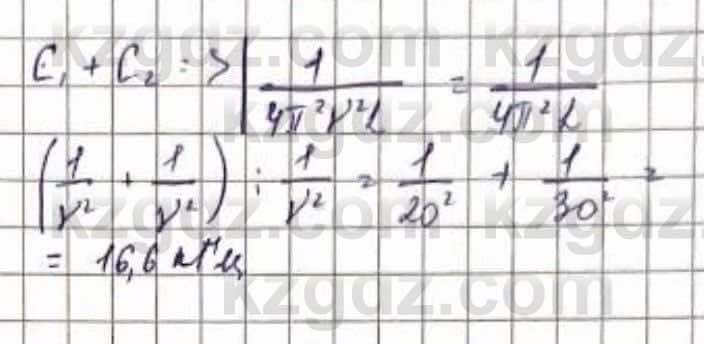 C₁ + C₂ => | 1/(4π²γ²L) = 1/(4π²L)
(1/γ² + 1/γ²) ; 1/γ² = 1/20² + 1/30² =
= 16,6 кГц
kzgdz.com
kzgdz.com
kzgdz.com